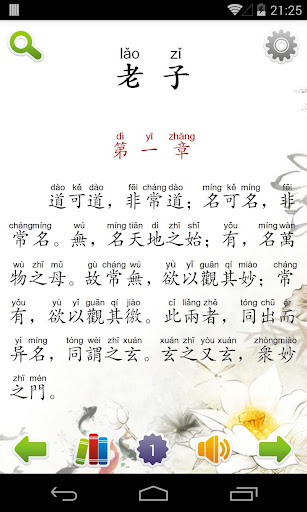 21:25
lǎo zǐ
老子
dì yī zhāng
第一章
dào kě dào fēi cháng dào míng kě míng fēi
道可道，非常道；名可名，非
chángmíng wú míng tiān dì zhī shǐ yǒu míng wàn
常名。無，名天地之始；有，名萬
wù zhī mǔ gù cháng wú yù yǐ guān qí miào cháng
物之母。故常無，欲以觀其妙；常
yǒu yù yǐ guān qí jiào cǐ liǎng zhě tóng chū ér
有，欲以觀其徼。此兩者，同出而
yì míng tóng wèi zhī xuán xuán zhī yòu xuán zhòng miào
异名，同謂之玄。玄之又玄，衆妙
zhī mén
之門。
1